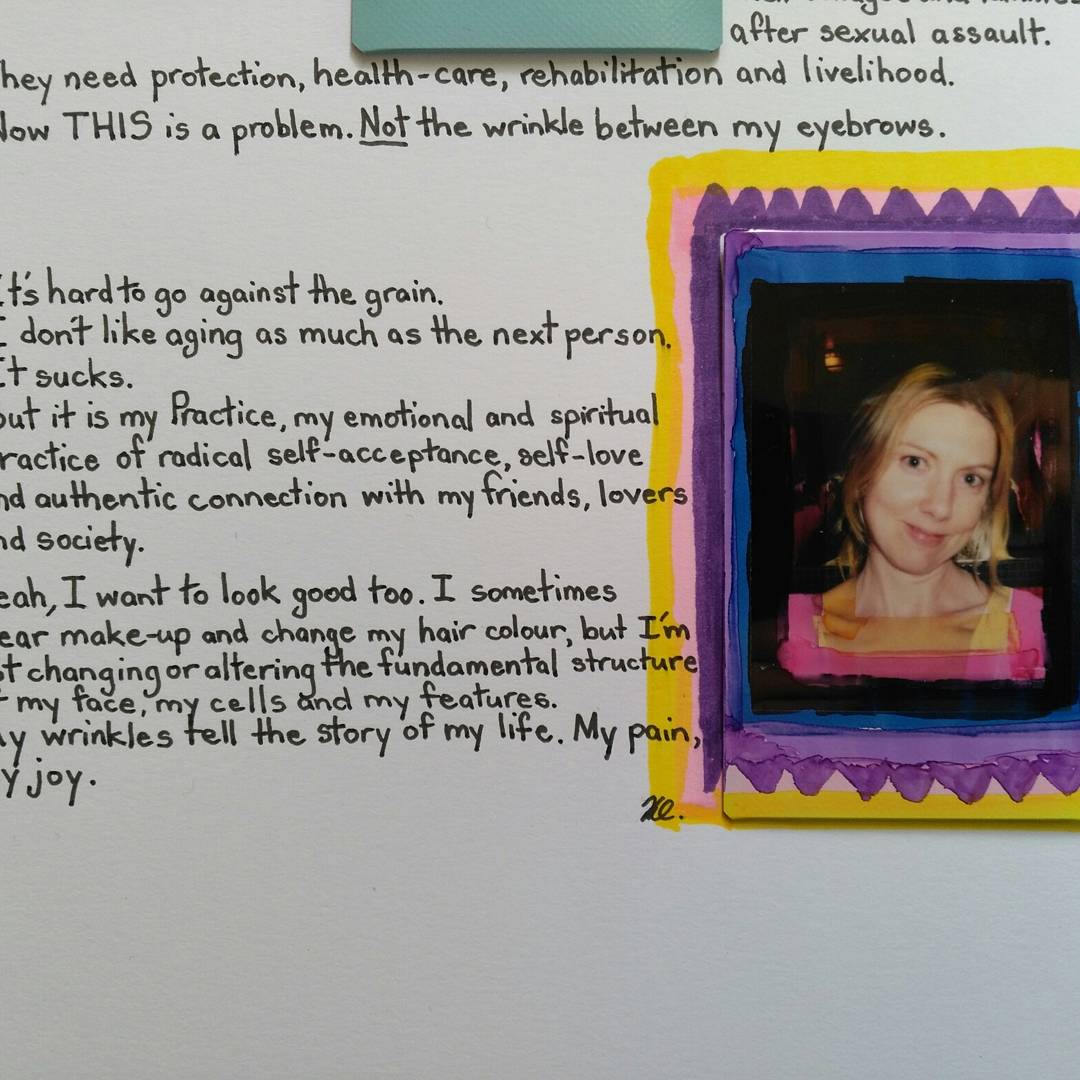 after sexual assault.
hey need protection, health-care, rehabilitation and livelihood.
Now THIS is a problem. Not the wrinkle between my eyebrows.
It's hard to go against the grain.
I don't like aging as much as the next person.
It sucks.
but it is my Practice, my emotional and spiritual
ractice of radical self-acceptance, self-love
nd authentic connection with my friends, lovers
nd society.
eah, I want to look good too. I sometimes
ear make-up and change my hair colour, but I'm
st changing or altering the fundamental structure
my face, my cells and my features.
My wrinkles tell the story of my life. My pain,
y joy.